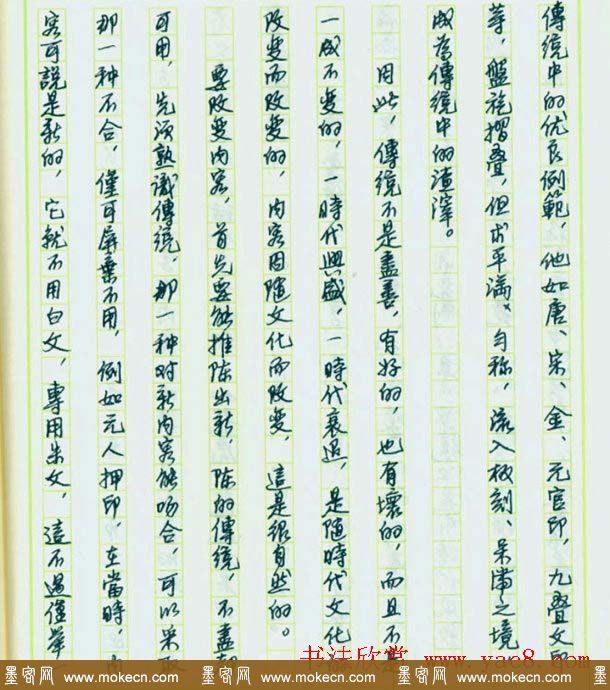 傳統中的优良例範，他如唐、宋、金、元官印，九疊文印
等，盤旋摺疊，但求平滿、勻称，流入板刻、呆滯之境
成為傳統中的渣滓。
因此，傳統不是盡善，有好的，也有壞的，而且不
一成不变的，一時代興盛，一時代衰退，是随時代文化
改变而改变的，内容因随文化而改变，這是很自然的。
要改变内容，首先要能推陈出新，陈的傳統，不盡
可用，先须熟識傳統，那一种对新内容能吻合，可以采取
那一种不合，僅可屏棄不用，例如元人押印，在當時，内
容可說是新的，它就不用白文，專用朱文，這不過僅舉一
书法欣赏 www.yac8.com
墨客网 www.mokecn.com 墨客网 www.mokecn.com 墨客网 www.mokecn.com 墨客网 www.mokecn.com